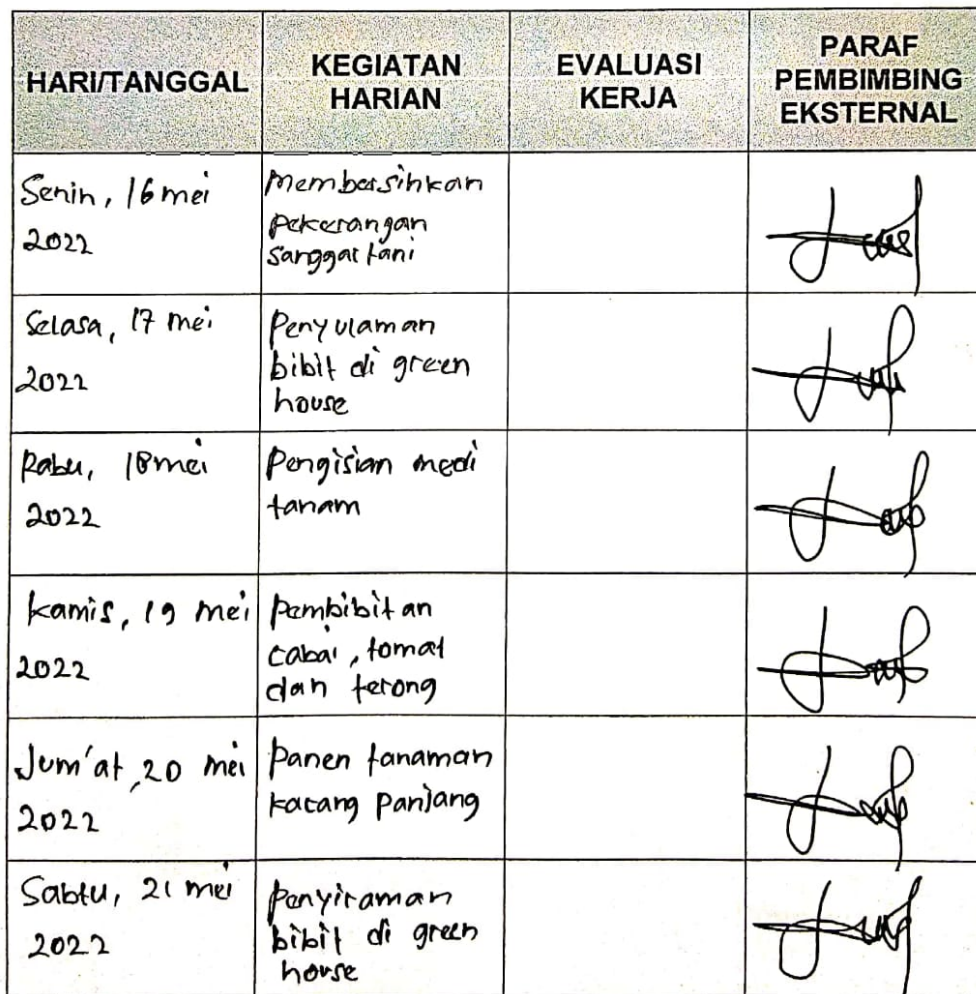 HARI/TANGGAL
KEGIATAN
HARIAN
EVALUASI
KERJA
PARAF
PEMBIMBING
EKSTERNAL
Senin, 16 mei
2022
Membersihkan
pekerangan
sanggar tani
Selasa, 17 mei
2022
Penyulaman
bibit di green
house
Rabu, 18 mei
2022
Pengisian medi
tanam
Kamis, 19 mei
2022
Pembibitan
cabai, tomat
dan terong
Jum'at, 20 mei
2022
Panen tanaman
kacang panjang
Sabtu, 21 mei
2022
Penyiraman
bibit di green
house